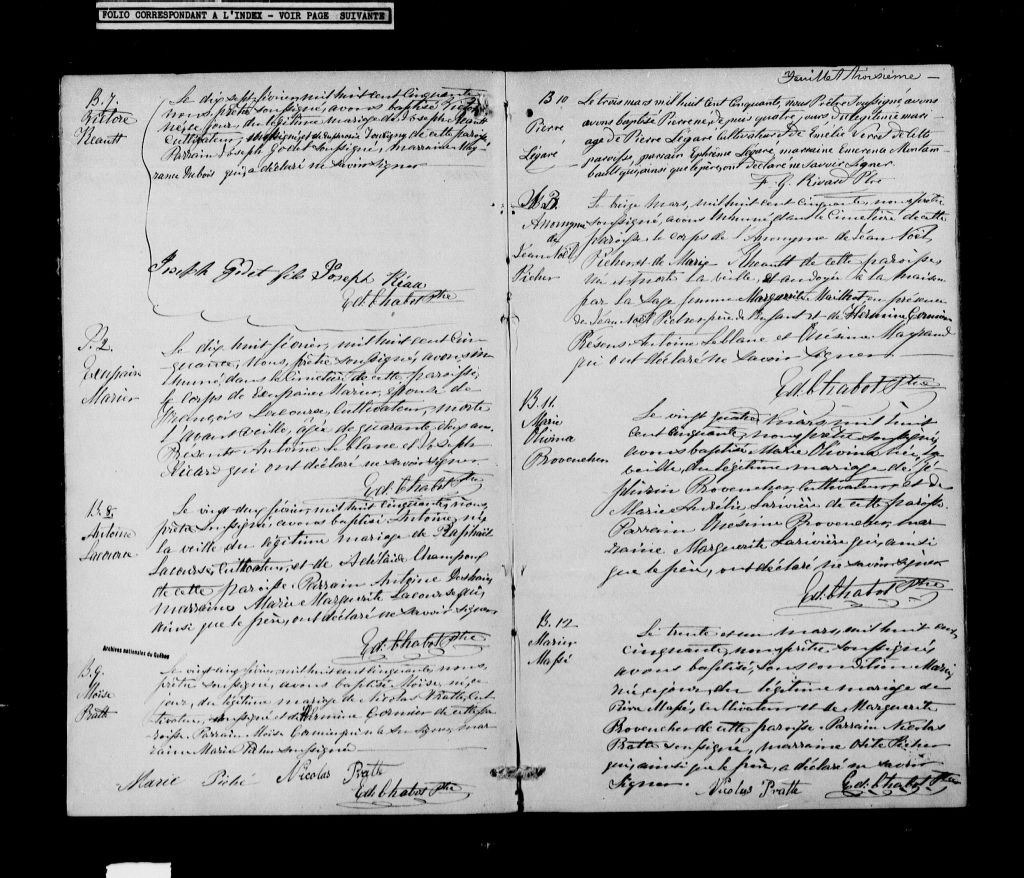 FOLIO CORRESPONDANT A L'INDEX - VOIR PAGE SUIVANTE
B. 7.
Réault
Le dix sept février mil huit cent cinquante
nous, prêtre soussigné, avons baptisé
né ce jour, du légitime mariage de Joseph Réault
Cultivateur, soussigné et de de cette paroisse
Parrain Joseph Godet soussigné, marraine
Dubois qui a déclaré ne savoir signer
Joseph Godet fils Joseph Réau
Ed. Chabot Ptre
Le dix huit février, mil huit cent cin-
quante, nous, prêtre soussigné, avons in-
humé, dans le Cimetière de cette paroisse,
le corps de épouse de
François Lacourse, Cultivateur, morte
l'avant veille, âgée de quarante cinq ans.
Présents Antoine Leblanc et Joseph
qui ont déclaré ne savoir signer.
Ed. Chabot Ptre
B. 8.
Antoine
Lacourse
Le vingt deux février, mil huit cent cinquante, nous,
prêtre soussigné, avons baptisé Antoine, né
la veille du légitime mariage de Raphaël
Lacourse, Cultivateur, et de Adélaïde Champoux
de cette paroisse. Parrain Antoine Deshaies,
marraine Marie Marguerite Lacourse qui,
ainsi que le père, ont déclaré ne savoir signer.
Ed. Chabot Ptre
Archives nationales du Québec
B. 9.
Moïse
Prath
Le vingt cinq février, mil huit cent cinquante, nous,
prêtre soussigné, avons baptisé Moïse, né ce
jour, du légitime mariage de Nicolas Prath, Cul-
tivateur, soussigné et d'Hermine Cormier de cette pa-
roisse. Parrain Moïse mar-
raine Marie soussignée
Marie Piché Nicolas Prath
Ed. Chabot Ptre
Feuillet troisième
B 10
Pierre
Légaré
Le trois mars mil huit cent cinquante, nous Prêtre soussigné avons
avons baptisé Pierre né depuis quatre jours du légitime mari-
age de Pierre Légaré Cultivateur & de Emelie de cette
paroisse, parrain Ephrème Légaré, marraine Emerence Montam-
bault qui ainsi que le père, ont déclaré ne savoir signer
F. G. Rivard Ptre
Anonyme
de
Jean Noël
Picher
Le treize mars, mil huit cent cinquante, nous prêtre
soussigné, avons inhumé dans le Cimetière de cette
paroisse le corps de l'Anonyme de Jean Noël
Picher et de Marie Héault de cette paroisse,
né et mort la veille, et ondoyé à la maison
par la sage femme Marguerite Mailhot en présence
de Jean Noël Picher père de l'enfant et de Hermine Cormier
Présens Antoine Leblanc et Onésime
qui ont déclaré ne savoir signer
Ed. Chabot Ptre
B. 11.
Marie
Olivina
Provencher
Le vingt quatre Mars, mil huit
cent cinquante, nous prêtre soussigné,
avons baptisé Marie Olivina née la
veille, du légitime mariage de Zé-
phirin Provencher, Cultivateur, et de
Marie Aurélie Larivière de cette paroisse
Parrain Onésime Provencher, mar-
raine Marguerite Larivière qui, ainsi
que le père, ont déclaré ne savoir signer
Ed. Chabot Ptre
B. 12
Massé
Le trente et un mars, mil huit cent
cinquante, nous prêtre soussigné,
avons baptisé, sous condition
né ce jour, du légitime mariage de
Massé, Cultivateur et de Marguerite
Provencher de cette paroisse. Parrain Nicolas
Prath soussigné, marraine Picher
qui, ainsi que le père, a déclaré ne savoir
signer. Nicolas Prath Ed. Chabot Ptre